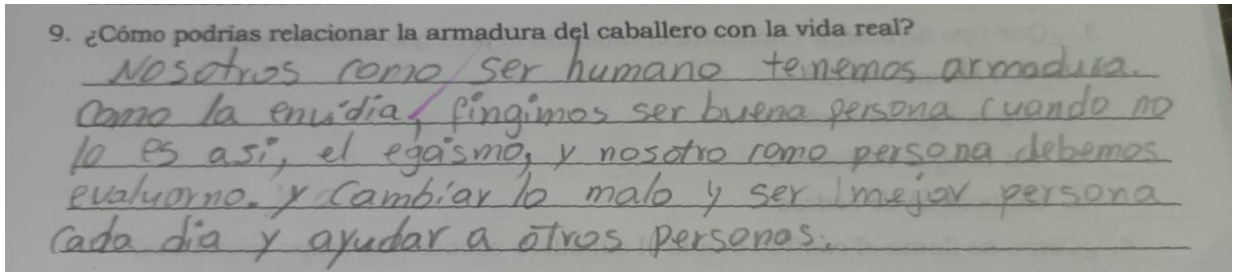 9. ¿Cómo podrias relacionar la armadura del caballero con la vida real?
Nosotros como ser humano tenemos armadura.
Como la envidia, fingimos ser buena persona cuando no
lo es asi, el egaismo, y nosotro como persona debemos
evaluarno. y cambiar lo malo y ser mejor persona
Cada dia y ayudar a otros personas.